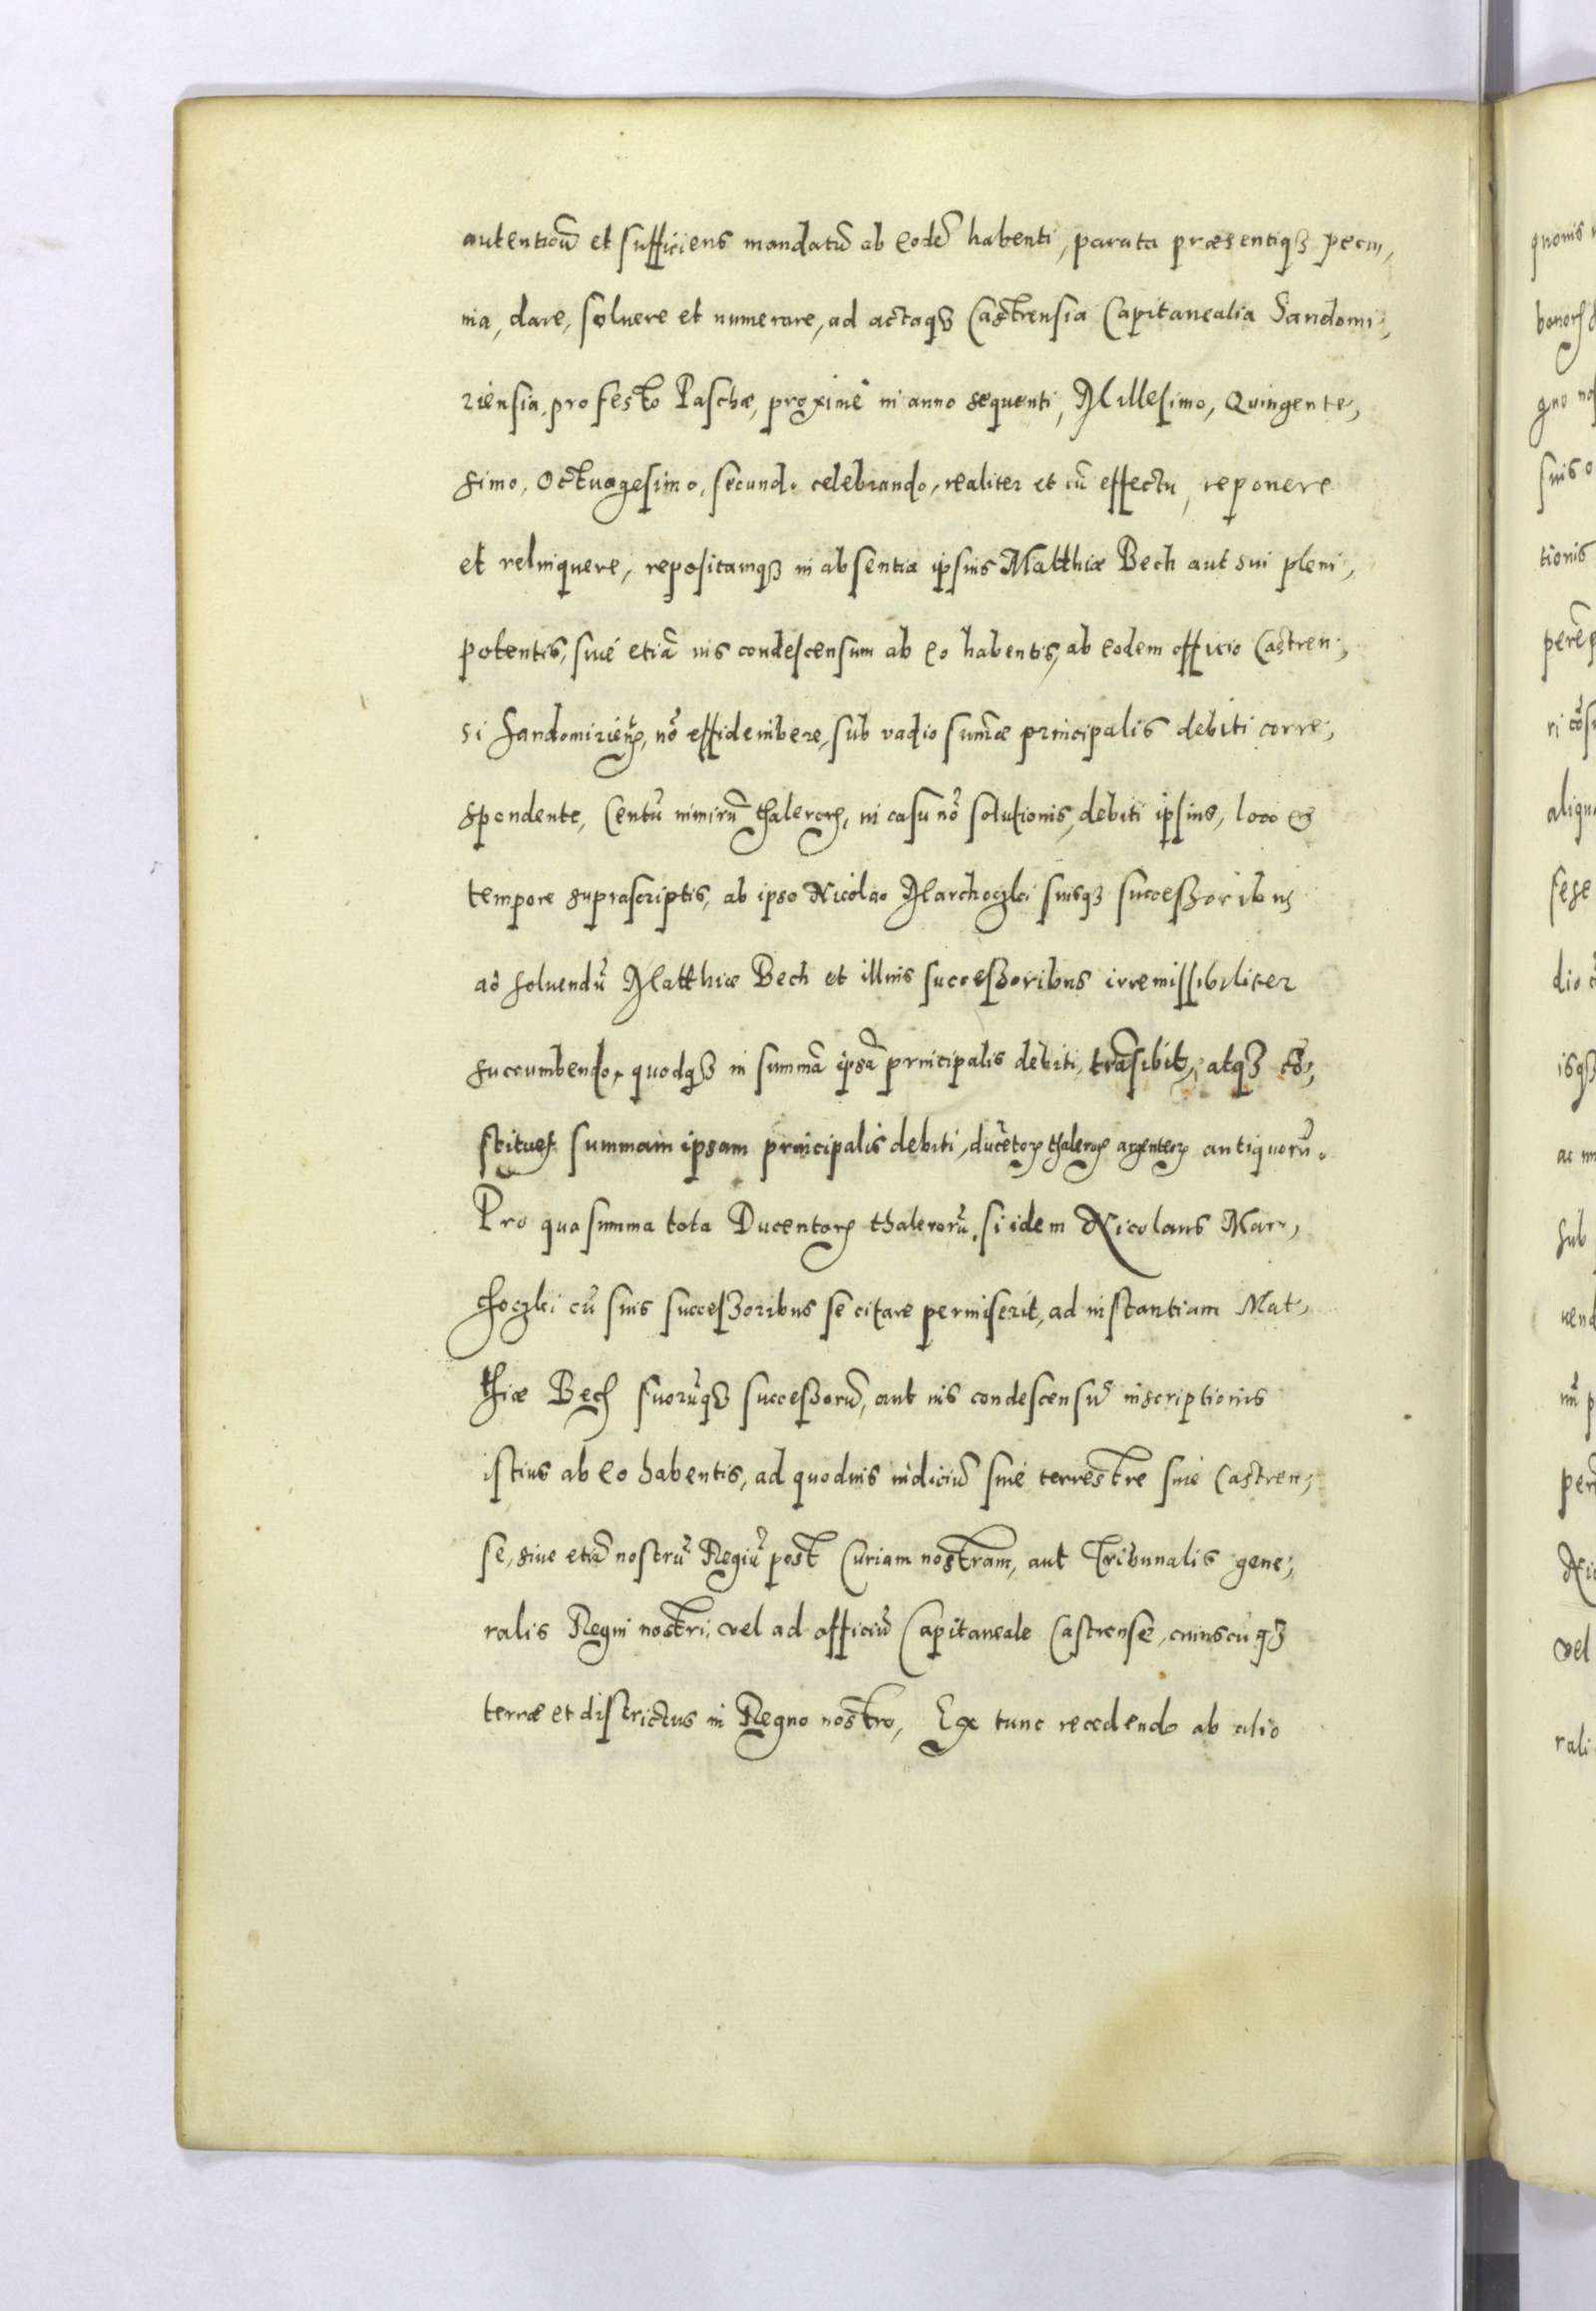 autenticũ et sufficiens mandatũ ab eodẽ habenti, parata præsentiq₃ pecu,
nia, dare, soluere et numerare, ad actaq₃ Castrensia Capitanealia Sandomi,
riensia, pro festo Paschæ, proximè in anno sequenti, Millesimo, Quingente,
simo, Octuagesimo, secundo celebrando, realiter et cũ effectu, reponere
et relinquere, repositamq₃ in absentia ipsius Matthiæ Bech aut sui pleni,
potentis, siué etiã ius condescensum ab eo habentis, ab eodem officio Castren,
si Sandomirieñ, nõ effideiubere, sub vadio sum̃æ principalis debiti corre,
spondente, Centũ nimirũ thalerorꝝ, in casu nõ solutionis, debiti ipsius, loco et
tempore suprascriptis, ab ipso Nicolao Marchoczki suisq₃ successoribus
ad soluendũ Matthiæ Bech et illius successoribus irremissibiliter
succumbendo, quodq₃ in summã ipsã principalis debiti, trãsibit, atq₃ cõ,
stituet summam ipsam principalis debiti, ducẽtorꝝ thalerorꝝ argenteorꝝ antiquorũ.
Pro qua summa tota Ducentorꝝ thalerorũ, si idem Nicolaus Mar,
choczki cũ suis successoribus se citare permiserit, ad instantiam Mat,
thiæ Bech suorũq₃ successorũ, aut ius condescensũ inscriptionis
istius ab eo habentis, ad quoduis iudiciũ siué terrestre siué Castren,
se, siue etiã nostrũ Regiũ post Curiam nostram, aut Tribunalis gene,
ralis Regni nostri, vel ad officiũ Capitaneale Castrense, cuiuscũq₃
terræ et districtus in Regno nostro, Ex tunc recedendo ab alio